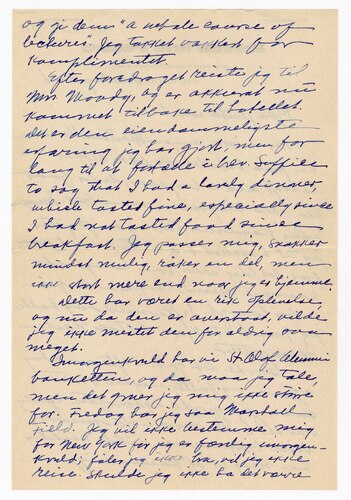 og gi dem "a whole course of
lectures". Jeg takket vakkert for
komplimentet.
Efter foredraget reiste jeg til
Mrs Moody, og er akkurat nu
kommet tilbake til hotellet.
Det er den eiendommeligste
erfaring jeg har gjort, men for
lang til at fortælle i brev. Suffice
to say that I had a lovely dinner,
which tasted fine, especially since
I had not tasted food since
breakfast. Jeg passer mig, snakker
mindst mulig, røker en del, men
ikke stort mere end naar jeg er hjemme.
Dette har været en rik oplevelse
og nu da den er overstaat, vilde
jeg ikke mistet den for aldrig saa
meget.
Imorgenkveld har vi St Olaf Alumni
banketten, og da maa jeg tale,
men det gruer jeg mig ikke større
for. Fredag har jeg saa Marshall
Field. Jeg vil ikke bestemme mig
for New York før jeg er færdig imorgen-
kveld; føler jeg ikke bra, vil jeg ikke
reise. Skulde jeg ikke ha det værre